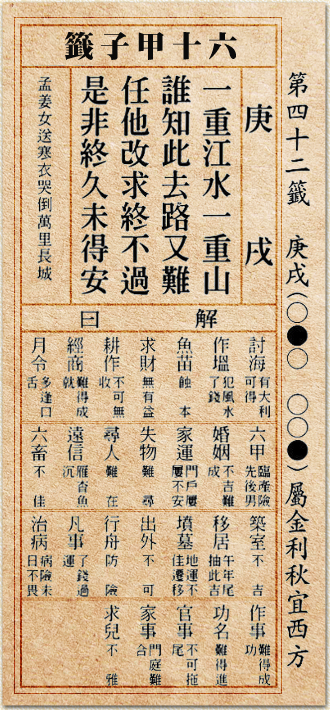 第四十二籤 庚戌(○●○ ○○●)屬金利秋宜西方
六十甲子籤
庚戌
一重江水一重山
誰知此去路又難
任他改求終不過
是非終久未得安
孟姜女送寒衣哭倒萬里長城
解曰
討海 有大利可得
作塭 犯風水了錢
魚苗 蝕本
求財 無有益
耕作 不可無收
經商 難得成就
月令 多逢口舌
六甲 臨產險先後男
婚姻 不吉難成
家運 門戶屢屢不安
失物 難尋
尋人 難在
遠信 雁杳魚沉
六畜 不佳
築室 不吉
移居 午年尾抽此吉
墳墓 地運不佳遷移
出外 不可
行舟 防險
凡事 了錢過運
治病 病險未日不畏
作事 難得成功
功名 難得進
官事 不可拖尾
家事 門庭難合
求兒 不雅